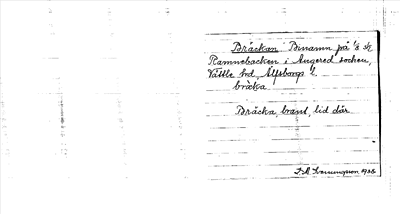 Bräckan Binamn på 1/8 sk
Ramnebacken i Angered socken,
Vättle hd, Älfsborgs l.
bräka
Bräcka, brant, lid där.
1938